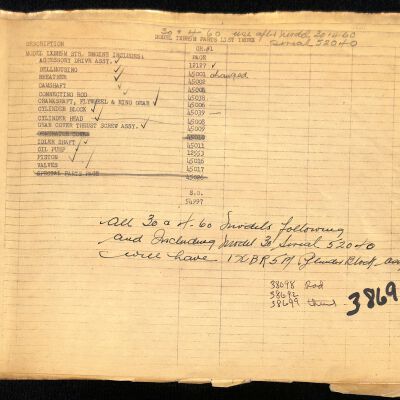 30 & 4-60 use after model 30 & 4-60
MODEL 1XBR5M PARTS LIST INDEX serial 52040
DESCRIPTION GR.#1
MODEL 1XBR5M STD. ENGINE INCLUDES: PAGE
ACCESSORY DRIVE ASSY. ✓ 12127 ✓
BELLHOUSING ✓ 45001 changed
BREATHER ✓ 45002
CAMSHAFT ✓ 45008
CONNECTING ROD ✓ 45038
CRANKSHAFT, FLYWHEEL & RING GEAR ✓ 45006
CYLINDER BLOCK ✓ 45039
CYLINDER HEAD ✓ 45008
GEAR COVER THRUST SCREW ASSY. ✓ 45009
IDLER SHAFT ✓ 45011
OIL PUMP ✓ 12553
PISTON ✓ 45016
VALVES ✓ 45017
SPECIAL PARTS PAGE
S.O.
54997
All 30 & 4-60 models following
and Including model 30 Serial 52040
will have 1XBR5M Cylinder Block assy
38098 Rod
38692
38699
3869